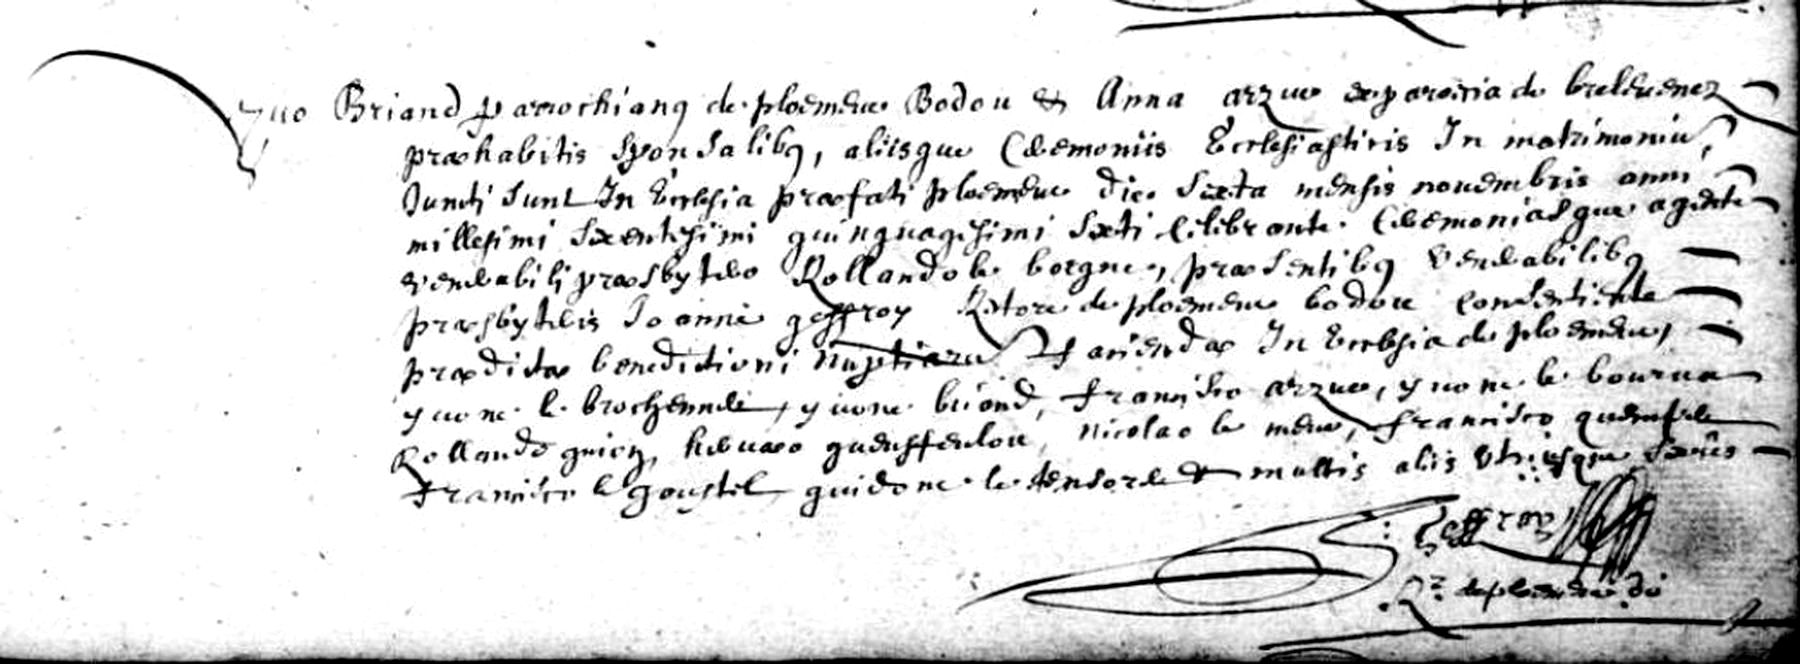 yuo Briand parrochianq de ploemeur Bodou & Anna arzur ex paroecia de brelevenez
praehabitis sponsalibq, aliisque Caeremoniis Ecclesiasticis In matrimoniu
Juncti sunt In Ecclesia praefati ploemeur die sexta mensis nouembris anni
millesimi sexentesimi quinquagesimi sexti Celebrante Caeremoniasque agente
venerabili praesbytero Rollando le borgne, praesentibq venerabilibq
praesbyteris Joanne geffroy Rectore de ploemeur bodou consentiente
praedictae benedictioni nuptiaru faciendae In Ecclesia de ploemeur,
yuone le yuone briand, francisco arzur, yuone le
Rollando Nicolao le meur, francisco
francisco le goustel guidone le & multis aliis Utriusque sexus
Geffroy
Rr de ploemeur bo